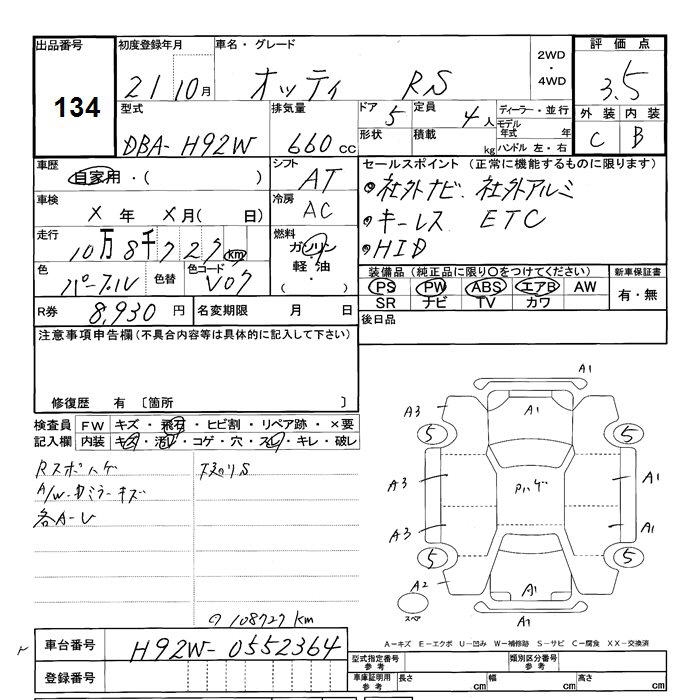 出品番号
134
初度登録年月
21 10月
車名・グレード
オッティ RS
2WD
・
4WD
評価点
3.5
外装 内装
C B
型式
DBA-H92W
排気量
660cc
ドア 5
形状
定員 4人
積載 kg
ディーラー・並行
モデル年式 年
ハンドル 左・右
車歴
自家用・( )
シフト
AT
車検
X 年 X月( 日)
冷房
AC
走行
10万8千727km
燃料
ガソリン
軽油
( ・ )
色
パープル
色替
色コード
V07
R券 8,930 円
名変期限 月 日
セールスポイント (正常に機能するものに限ります)
・社外ナビ 社外アルミ
・キーレス ETC
・HID
装備品 (純正品に限り○をつけてください)
PS PW ABS エアB AW
SR ナビ TV カワ
新車保証書
有・無
後日品
注意事項申告欄(不具合内容等は具体的に記入して下さい)
修復歴 有 〔箇所 〕
検査員記入欄
FW キズ・飛石・ヒビ割・リペア跡・×要
内装 キズ・汚レ・コゲ・穴・スレ・キレ・破レ
Rスポハゲ
A/w・Dミラーキズ
各A-U
下廻りS
108727km
車台番号 H92W-0552364
登録番号
A1
A3
A1
5
5
A3
Pハゲ
A1
A3
A1
5
5
A2
A1
スペア
A1
A-キズ E-エクボ U-凹み W-補修跡 S-サビ C-腐食 XX-交換済
型式指定番号 参考
類別区分番号 参考
車庫証明用 参考
長さ cm
幅 cm
高さ cm